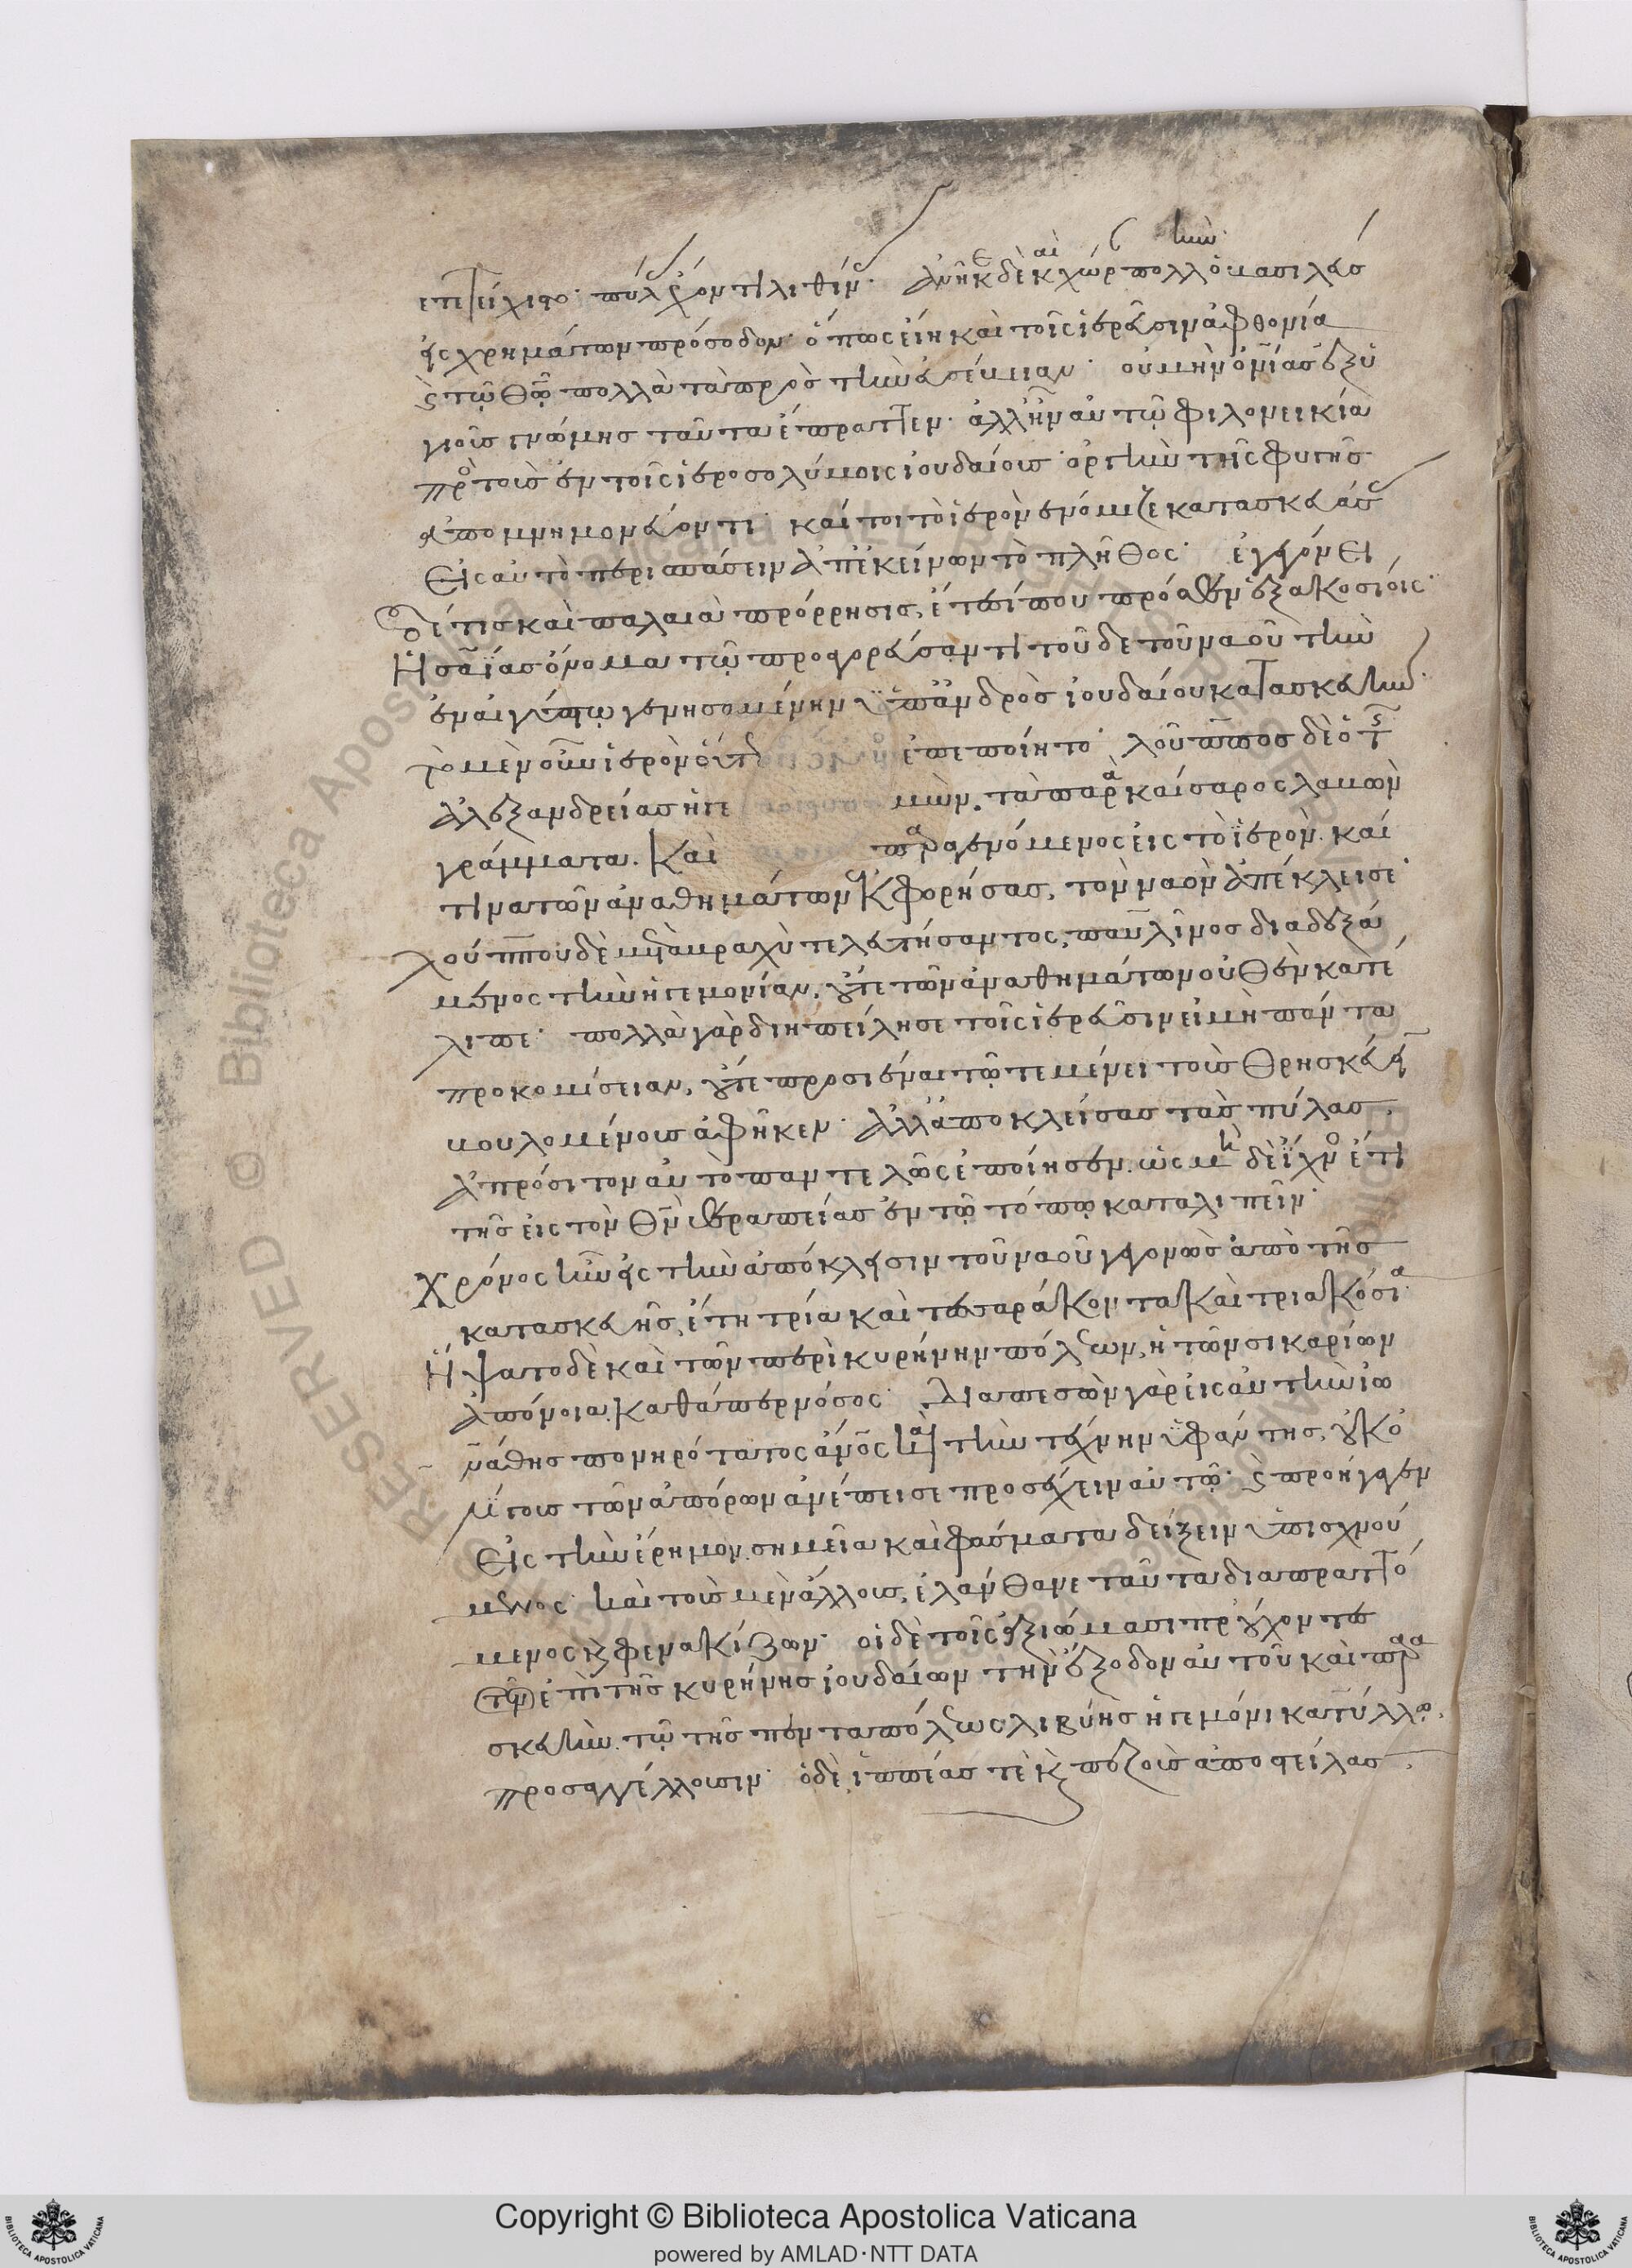 ετετείχιστο· πύλας ἔχον τι λιθίνας· ἀνῆκε δὲ καὶ χώραν πολλὴν ὁ βασιλεὺς
εἰς χρημάτων πρόσοδον· ὅπως εἴη καὶ τοῖς ἱερεῦσιν ἀφθονία
καὶ τῷ θεῷ πολλὰ τὰ πρὸς τὴν εὐσέβειαν· οὐ μὴν ὀνίας ἐξ ὑ
γιοῦς γνώμης ταῦτα ἔπραττεν· ἀλλ' ἦν αὐτῷ φιλονεικία
πρὸς τοὺς ἐν τοῖς ἱεροσολύμοις ἰουδαίους ὀργὴν τῆς φυγῆς
ἀπομνημονεύοντι· καί τοι τὸ ἱερὸν ἐνόμιζε κατασκευάσας
εἰς αὐτὸ περισπάσειν ἀπ' ἐκείνων τὸ πλῆθος· ἐγεγόνει
δέ τις καὶ παλαιὰ πρόρρησις, ἔτεσί που πρόσθεν ἑξακοσίοις·
Ἡσαΐας ὄνομα τῷ προαγορεύσαντι τοῦδε τοῦ ναοῦ τὴν
ἐν αἰγύπτῳ γενησομένην ὑπ' ἀνδρὸς ἰουδαίου κατασκευήν·
τὸ μὲν οὖν ἱερὸν οὕτως ἐπεποίητο· λούππος δὲ ὁ τῆς
ἀλεξανδρείας ἡγε μὼν, τὰ παρὰ καίσαρος λαβὼν
γράμματα. Καὶ παραγενόμενος εἰς τὸ ἱερὸν. καί
τινα τῶν ἀναθημάτων ἐκφορήσας, τὸν ναὸν ἀπέκλεισε·
λούππου δὲ μετὰ βραχὺ τελευτήσαντος, παυλῖνος διαδεξά
μενος τὴν ἡγεμονίαν, οὔτε τῶν ἀναθημάτων οὐθὲν κατέ
λιπε· πολλὰ γὰρ διηπείλησε τοῖς ἱερεῦσιν εἰ μὴ πάντα
προκομίσειαν, οὔτε προσιέναι τῷ τεμένει τοὺς θρησκεύειν
βουλομένους ἀφῆκεν· ἀλλ' ἀποκλείσας τὰς πύλας,
ἀπρόσιτον αὐτὸ παντελῶς ἐποίησεν. ὡς μηδὲ ἴχνος ἔτι
τῆς εἰς τὸν θεὸν θεραπείας ἐν τῷ τόπῳ καταλιπεῖν·
Χρόνος ἦν εἰς τὴν ἀπόκλεισιν τοῦ ναοῦ γεγονὼς ἀπὸ τῆς
κατασκευῆς, ἔτη τρία καὶ τεσσαράκοντα καὶ τριακόσια·
Ἥψατο δὲ καὶ τῶν περὶ κυρήνην πόλεων, ἡ τῶν σικαρίων
ἀπόνοια, καθάπερ νόσος· διαπεσὼν γὰρ εἰς αὐτὴν ἰω
νάθης πονηρότατος ἄνθρωπος καὶ τὴν τέχνην ὑφάντης, οὐκ ὀ
λίγους τῶν ἀπόρων ἀνέπεισε προσέχειν αὐτῷ· καὶ προήγαγεν
εἰς τὴν ἔρημον, σημεῖα καὶ φάσματα δείξειν ὑπισχνού
μενος· καὶ τοὺς μὲν ἄλλους, ἐλάνθανε ταῦτα διαπραττό
μενος καὶ φενακίζων· οἱ δὲ τοῖς ἀξιώμασι προύχοντες
τῶν ἐπὶ τῆς κυρήνης ἰουδαίων τὴν ἔξοδον αὐτοῦ καὶ παρα
σκευὴν. τῷ τῆς πενταπόλεως λιβύης ἡγεμόνι κατύλλῳ,
προσαγγέλλουσιν· ὁ δὲ ἱππέας τε καὶ πεζοὺς ἀποστείλας
Copyright © Biblioteca Apostolica Vaticana
powered by AMLAD·NTT DATA